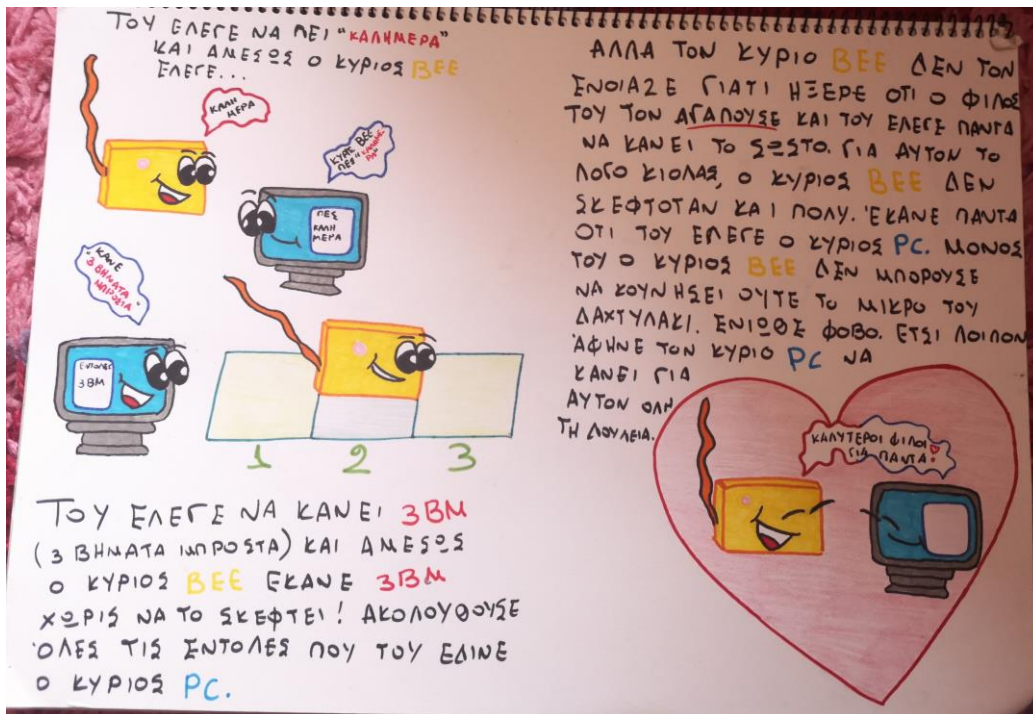 ΤΟΥ ΕΛΕΓΕ ΝΑ ΠΕΙ "ΚΑΛΗΜΕΡΑ"
ΚΑΙ ΑΜΕΣΩΣ Ο ΚΥΡΙΟΣ BEE
ΕΛΕΓΕ...
ΚΑΛΗ
ΜΕΡΑ
ΚΥΡΙΕ BEE
ΠΕΣ "ΚΑΛΗΜΕ
ΡΑ"
ΠΕΣ
ΚΑΛΗ
ΜΕΡΑ
"ΚΑΝΕ
3 ΒΗΜΑΤΑ
ΜΠΡΟΣΤΑ"
ΕΝΤΟΛΕΣ
3ΒΜ
1 2 3
ΤΟΥ ΕΛΕΓΕ ΝΑ ΚΑΝΕΙ 3ΒΜ
(3 ΒΗΜΑΤΑ ΜΠΡΟΣΤΑ) ΚΑΙ ΑΜΕΣΩΣ
Ο ΚΥΡΙΟΣ BEE ΕΚΑΝΕ 3ΒΜ
ΧΩΡΙΣ ΝΑ ΤΟ ΣΚΕΦΤΕΙ! ΑΚΟΛΟΥΘΟΥΣΕ
ΌΛΕΣ ΤΙΣ ΕΝΤΟΛΕΣ ΠΟΥ ΤΟΥ ΕΔΙΝΕ
Ο ΚΥΡΙΟΣ PC.
ΑΛΛΑ ΤΟΝ ΚΥΡΙΟ BEE ΔΕΝ ΤΟΝ
ΕΝΟΙΑΖΕ ΓΙΑΤΙ ΗΞΕΡΕ ΟΤΙ Ο ΦΙΛΟΣ
ΤΟΥ ΤΟΝ ΑΓΑΠΟΥΣΕ ΚΑΙ ΤΟΥ ΕΛΕΓΕ ΠΑΝΤΑ
ΝΑ ΚΑΝΕΙ ΤΟ ΣΩΣΤΟ. ΓΙΑ ΑΥΤΟΝ ΤΟ
ΛΟΓΟ ΚΙΟΛΑΣ, Ο ΚΥΡΙΟΣ BEE ΔΕΝ
ΣΚΕΦΤΟΤΑΝ ΚΑΙ ΠΟΛΥ. ΈΚΑΝΕ ΠΑΝΤΑ
ΟΤΙ ΤΟΥ ΕΛΕΓΕ Ο ΚΥΡΙΟΣ PC. ΜΟΝΟΣ
ΤΟΥ Ο ΚΥΡΙΟΣ BEE ΔΕΝ ΜΠΟΡΟΥΣΕ
ΝΑ ΚΟΥΝΗΣΕΙ ΟΥΤΕ ΤΟ ΜΙΚΡΟ ΤΟΥ
ΔΑΧΤΥΛΑΚΙ. ΕΝΙΩΘΕ ΦΟΒΟ. ΕΤΣΙ ΛΟΙΠΟΝ
ΆΦΗΝΕ ΤΟΝ ΚΥΡΙΟ PC ΝΑ
ΚΑΝΕΙ ΓΙΑ
ΑΥΤΟΝ ΟΛΗ
ΤΗ ΔΟΥΛΕΙΑ.
ΚΑΛΥΤΕΡΟΙ ΦΙΛΟΙ
ΓΙΑ ΠΑΝΤΑ